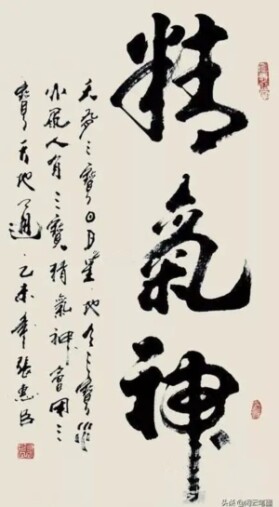 精氣神
天有三寶日月星地有三寶水
火風人有三寶精氣神會用三
寶天地通乙未年張惠臣
头条